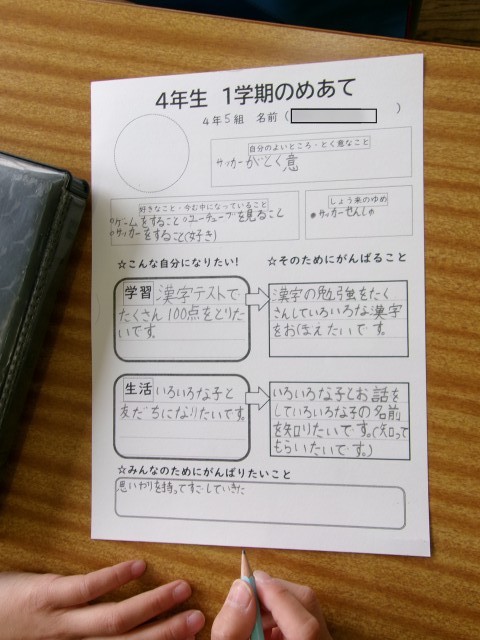 4年生 1学期のめあて
4年5組 名前( )
自分のよいところ・とく意なこと
サッカーがとく意
好きなこと・今む中になっていること
°ゲームをすること°ユーチューブを見ること
°サッカーをすること(好き)
しょう来のゆめ
●サッカーせんしゅ
☆こんな自分になりたい!
学習 漢字テストで
たくさん100点をとりた
いです。
☆そのためにがんばること
漢字の勉強をたく
さんしていろいろな漢字
をおぼえたいです。
生活 いろいろな子と
友だちになりたいです。
いろいろな子とお話を
していろいろな子の名前
を知りたいです。(知って
もらいたいです。)
☆みんなのためにがんばりたいこと
思いやりを持ってすごしていきた